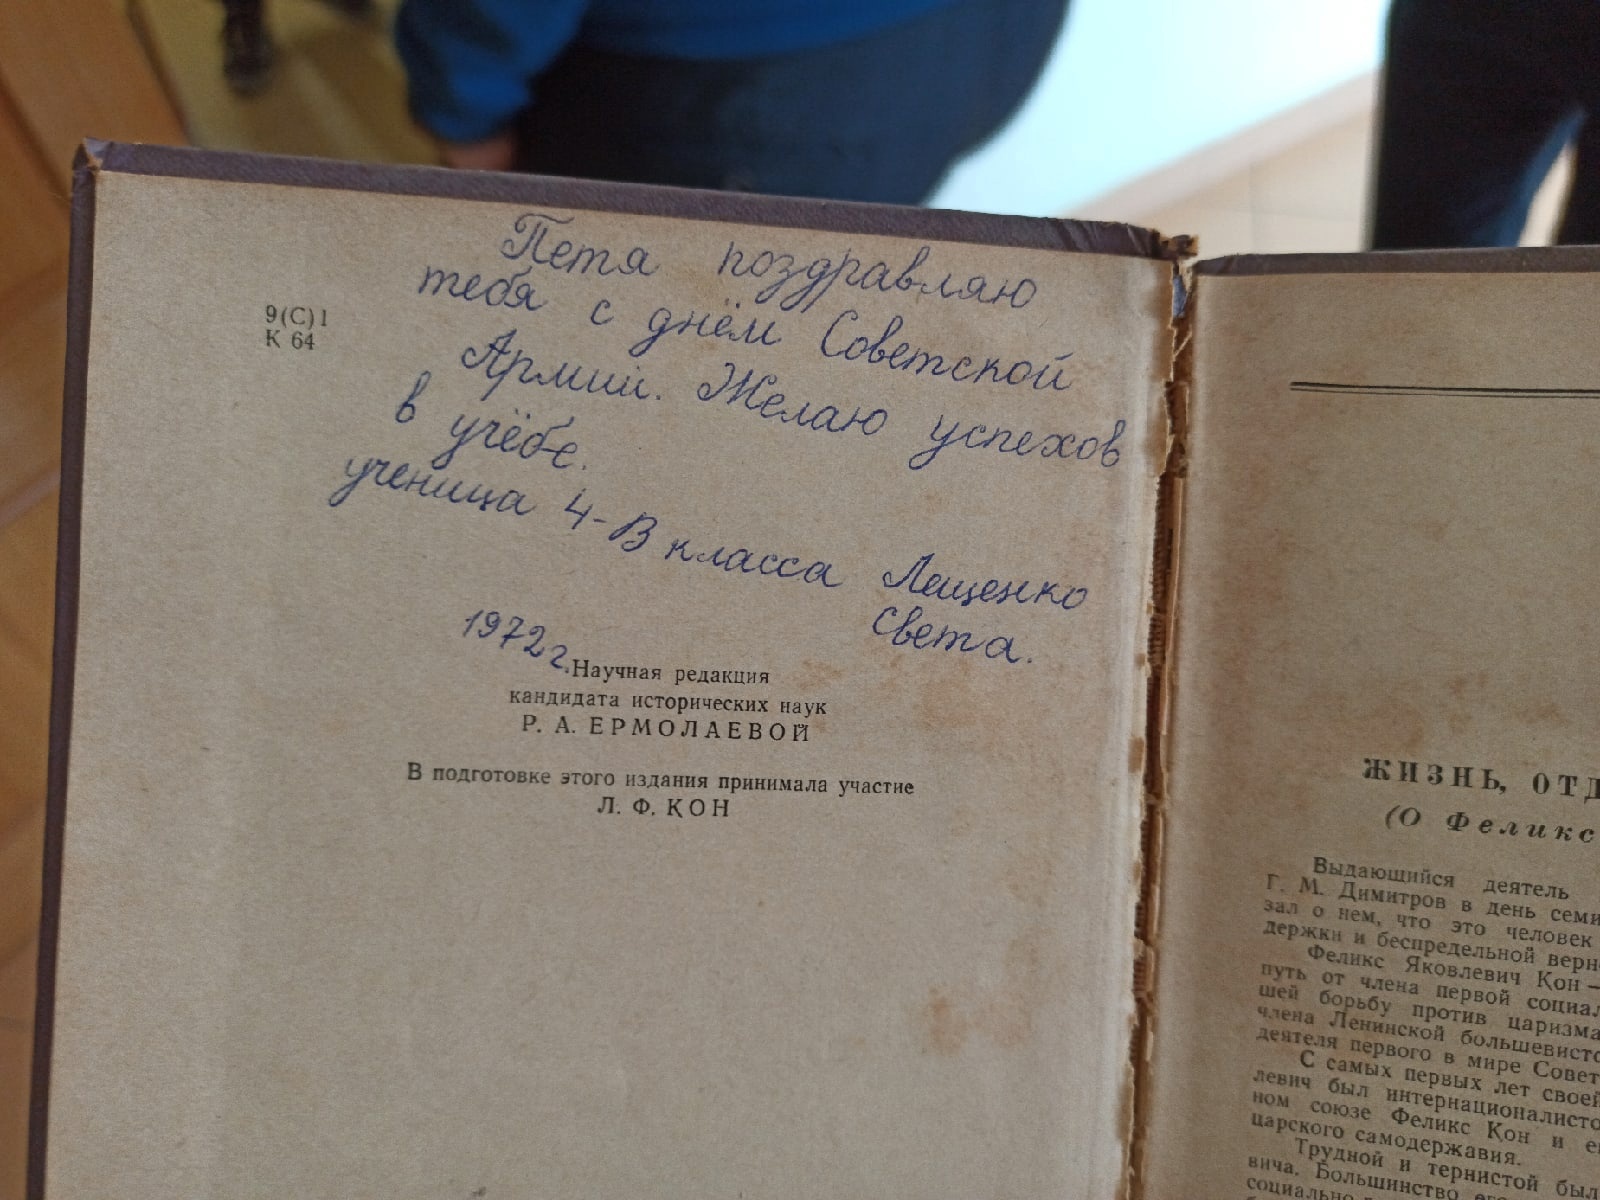 Петя поздравляю
тебя с днём Советской
Армии. Желаю успехов
в учёбе.
ученица 4-В класса Лещенко
Света.
1972 г.
9(С)1
К 64
Научная редакция
кандидата исторических наук
Р. А. ЕРМОЛАЕВОЙ
В подготовке этого издания принимала участие
Л. Ф. КОН
ЖИЗНЬ, ОТД
(О Феликс
Выдающийся деятель
Г. М. Димитров в день семи
зал о нем, что это человек
держки и беспредельной верн
Феликс Яковлевич Кон —
путь от члена первой социал
шей борьбу против царизма
члена Ленинской большевистс
деятеля первого в мире Совет
С самых первых лет своей
левич был интернационалисто
ном союзе Феликс Кон и е
царского самодержавия.
Трудной и тернистой был
вича. Большинство
социально